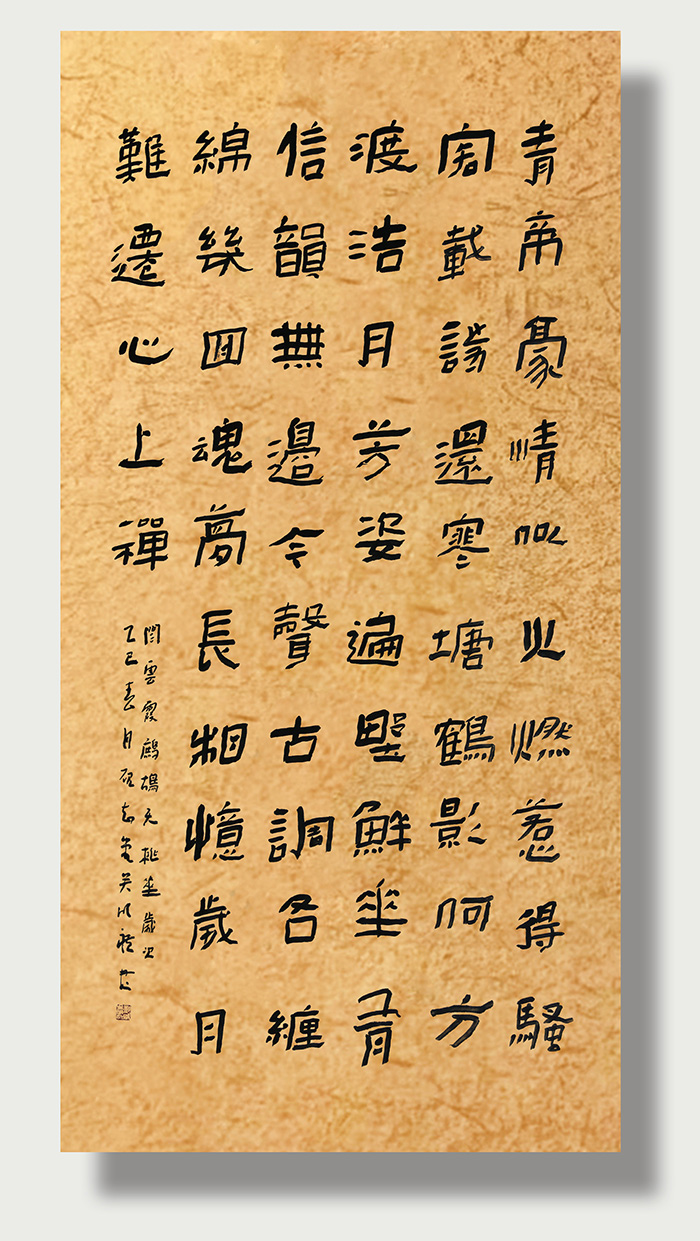 青帝豪情似火燃惹得騷
客載詩還寒塘鶴影何方
渡浩月芳姿遍野鮮華有
信韻無邊今聲古調各纏
綿幾回魂夢長相憶歲月
難遷心上禪
閆雲霞鷓鴣天桃華歲次
乙巳春月